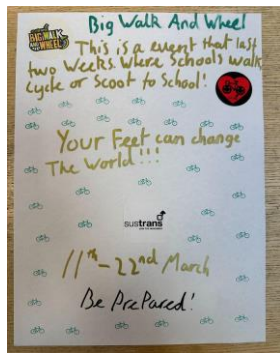 Big Walk And Wheel
BIG WALK
AND WHEEL
This is a event that last
two Weeks Where Schools walk,
cycle or Scoot to School!
Your Feet can change
The World!!!
sustrans
11th-22nd March
Be PrePared!